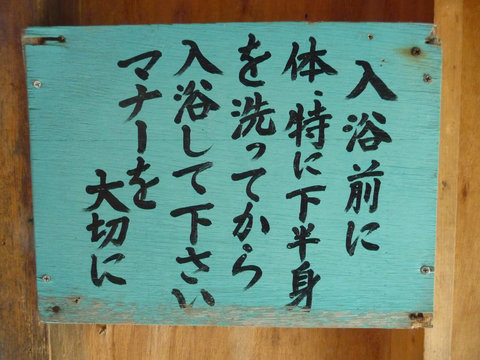 入浴前に
体、特に下半身
を洗ってから
入浴して下さい
マナーを
大切に